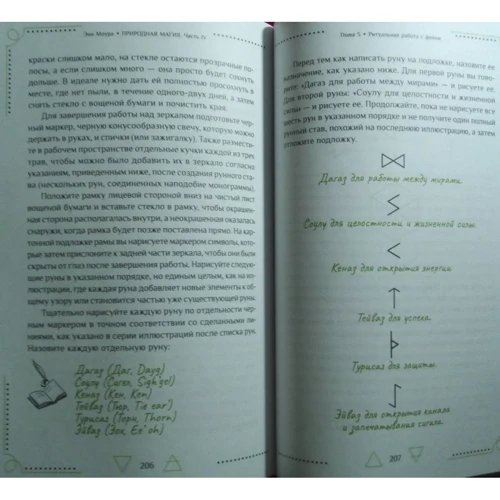 Энн Моура • ПРИРОДНАЯ МАГИЯ. Часть IV
краски слишком мало, на стекле остаются прозрачные по-
лосы, а если слишком много — она просто будет сохнуть
дольше. В идеале нужно дать ей полностью просохнуть в
месте, где нет пыли, в течение одного-двух дней, а затем
снять стекло с вощеной бумаги и почистить края.
Для завершения работы над зеркалом подготовьте чер-
ный маркер, черную конусообразную свечу, которую можно
держать в руках, и спички (или зажигалку). Также размести-
те в рабочем пространстве отдельные кучки каждой из трех
трав, чтобы можно было добавить их в зеркало согласно
указаниям, приведенным ниже, после создания рунного ста-
ва (нескольких рун, соединенных наподобие монограммы).
Положите рамку лицевой стороной вниз на чистый лист
вощеной бумаги и вставьте стекло в рамку, чтобы окра-
шенная сторона располагалась внутри, а неокрашенная оказалась
снаружи, когда рамка будет позже поставлена прямо. На кар-
тонной подложке рамы вы нарисуете маркером символы, кото-
рые затем прислоните к задней части зеркала, чтобы они были
скрыты от глаз после завершения работы. Нарисуйте следую-
щие руны в указанном порядке, но единым целым, как на ил-
люстрации, где каждая руна добавляет новые элементы к об-
щему узору или становится частью уже существующей руны.
Тщательно нарисуйте каждую руну по отдельности чер-
ным маркером в точном соответствии со сделанными ли-
ниями, как указано в серии иллюстраций после списка рун.
Назовите каждую отдельную руну:
Дагаз (Даг, Dayg)
Соулу (Сигел, Sigh'gel)
Кеназ (Кен, Ken)
Тейваз (Тюр, Tie ear')
Турисаз (Торн, Thorn)
Эйваз (Эох, Ee' oh)
206
Глава 5. • Ритуальная работа с феями
Перед тем как написать руну на подложке, назовите ее
назначение, как указано ниже. Для первой руны вы гово-
рите: «Дагаз для работы между мирами» — и рисуете ее.
Для второй руны: «Соулу для целостности и жизненной
силы» — и рисуете ее. Продолжайте, пока не нарисуете все
шесть рун в указанном порядке и не получите один полный
рунный став, похожий на последнюю иллюстрацию, а затем
отложите подложку.
Дагаз для работы между мирами.
Соулу для целостности и жизненной силы.
Кеназ для открытия энергии.
Тейваз для успеха.
Турисаз для защиты.
Эйваз для открытия канала
и запечатывания сигила.
207